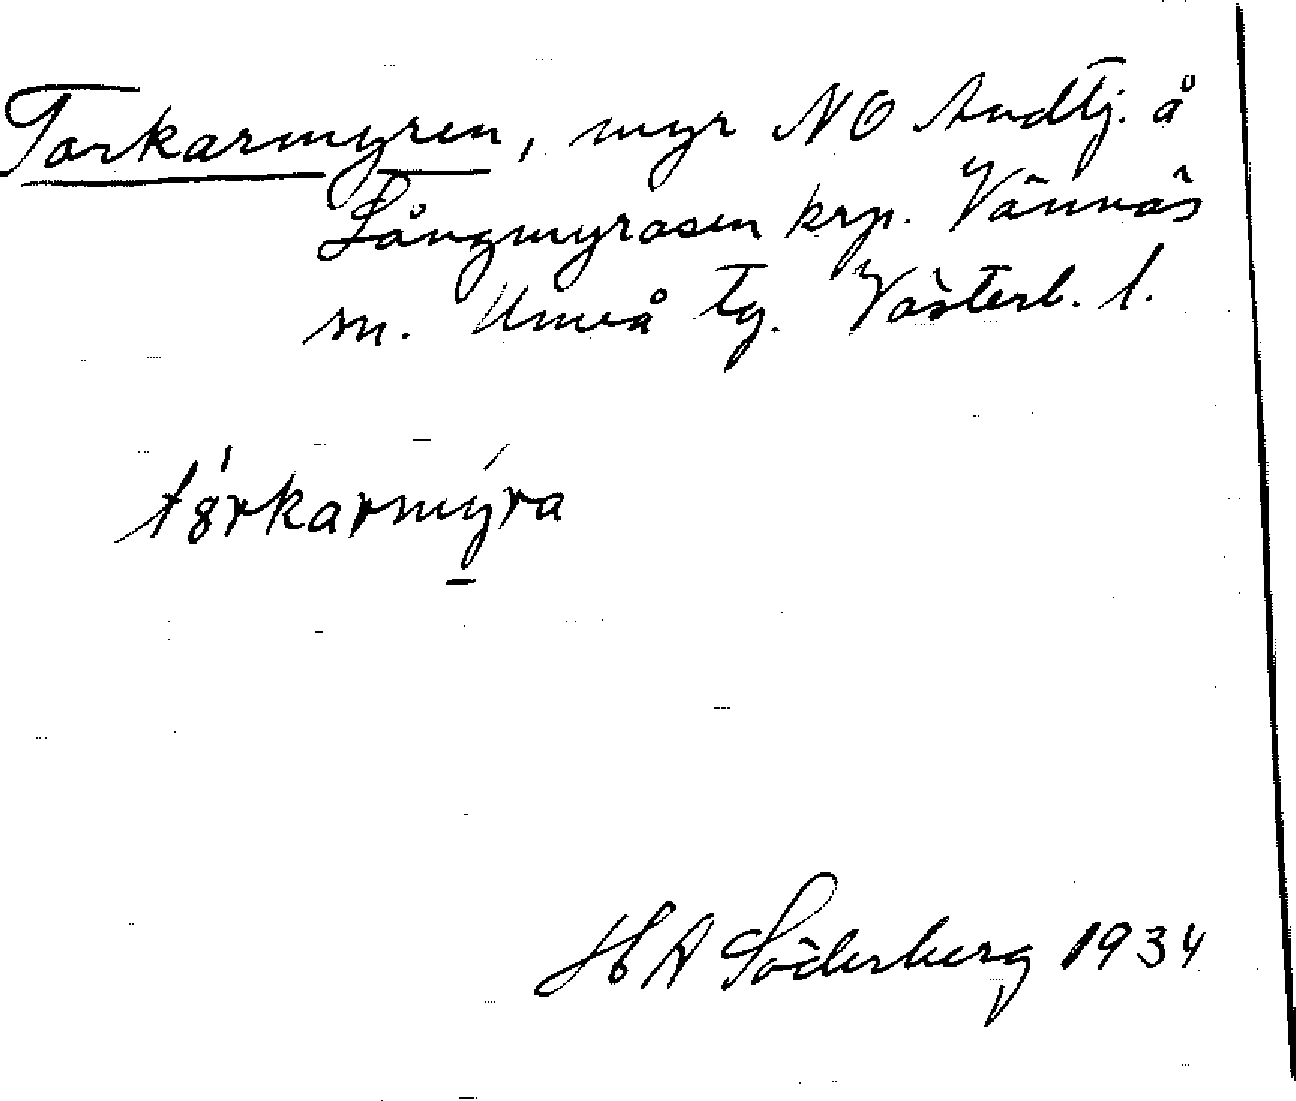 Torkarmyren, myr NO Andtj. å
Långmyråsen krp. Vännäs
sn. Umeå tg. Västerb. l.
tȣrkarmyra
HA Söderberg 1934